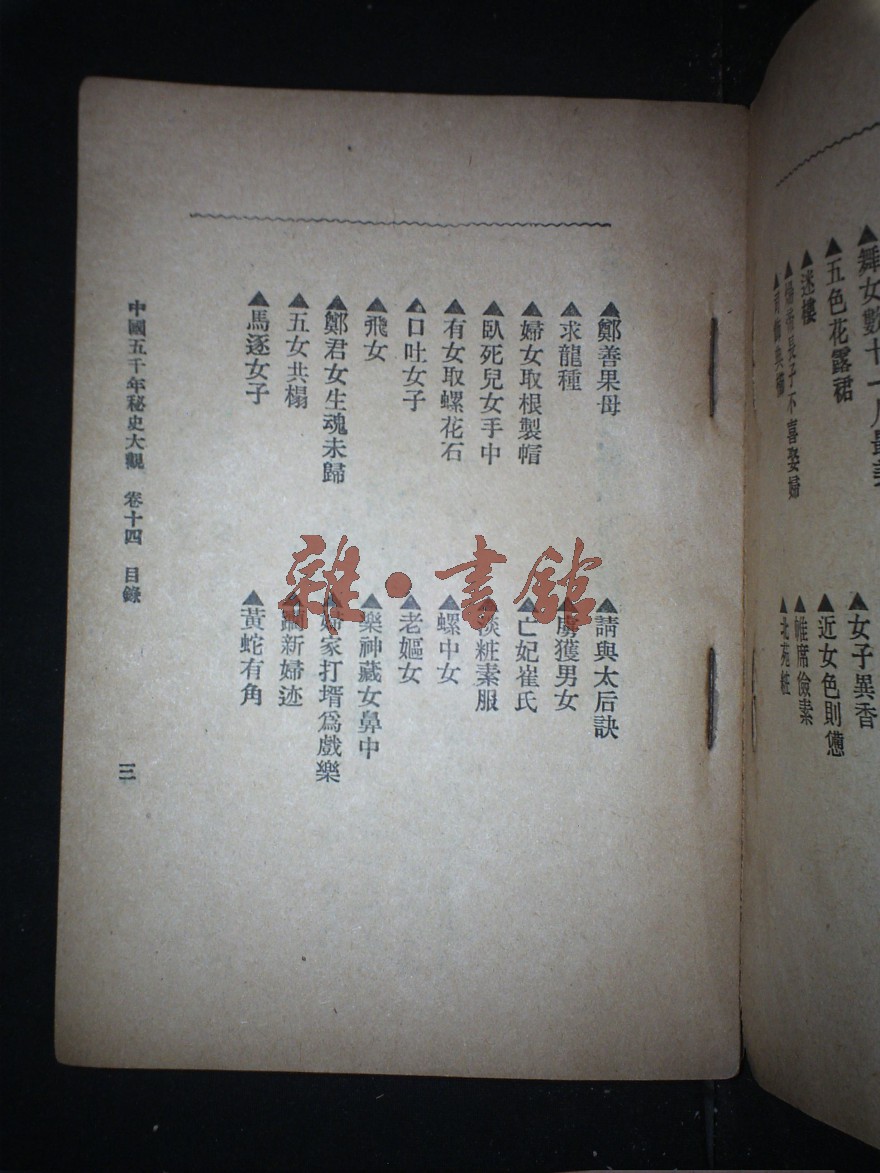 舞女數十
五色花露裙
迷樓
長子不喜娶婦
女子異香
近女色則憊
帷席儉素
北苑粧
鄭善果母
求龍種
婦女取根製帽
臥死兒女手中
有女取螺花石
口吐女子
飛女
鄭君女生魂未歸
五女共榻
馬逐女子
請與太后訣
虜獲男女
亡妃崔氏
淡粧素服
螺中女
老嫗女
樂神藏女鼻中
婦家打壻爲戲樂
新婦迹
黃蛇有角
中國五千年秘史大觀 卷十四 目錄
三
雜·書館